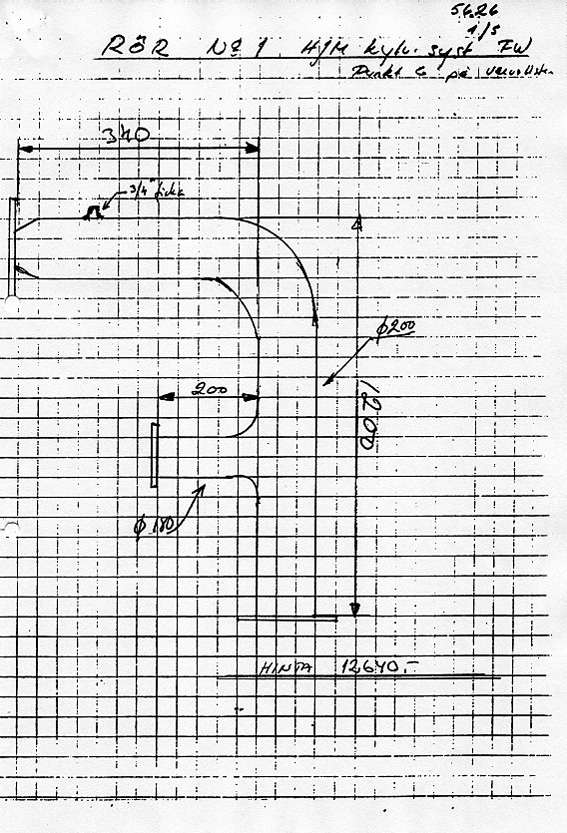 5626
1/5
RÖR No 1 HJM kylv. syst FW
Punkt 6 på
340
3/4"
ø200
200
1200
ø 180
HINTA 12640.-